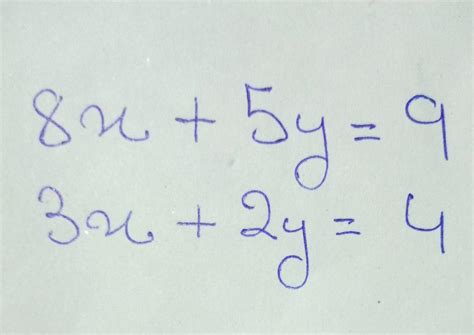 8x + 5y = 9
3x + 2y = 4